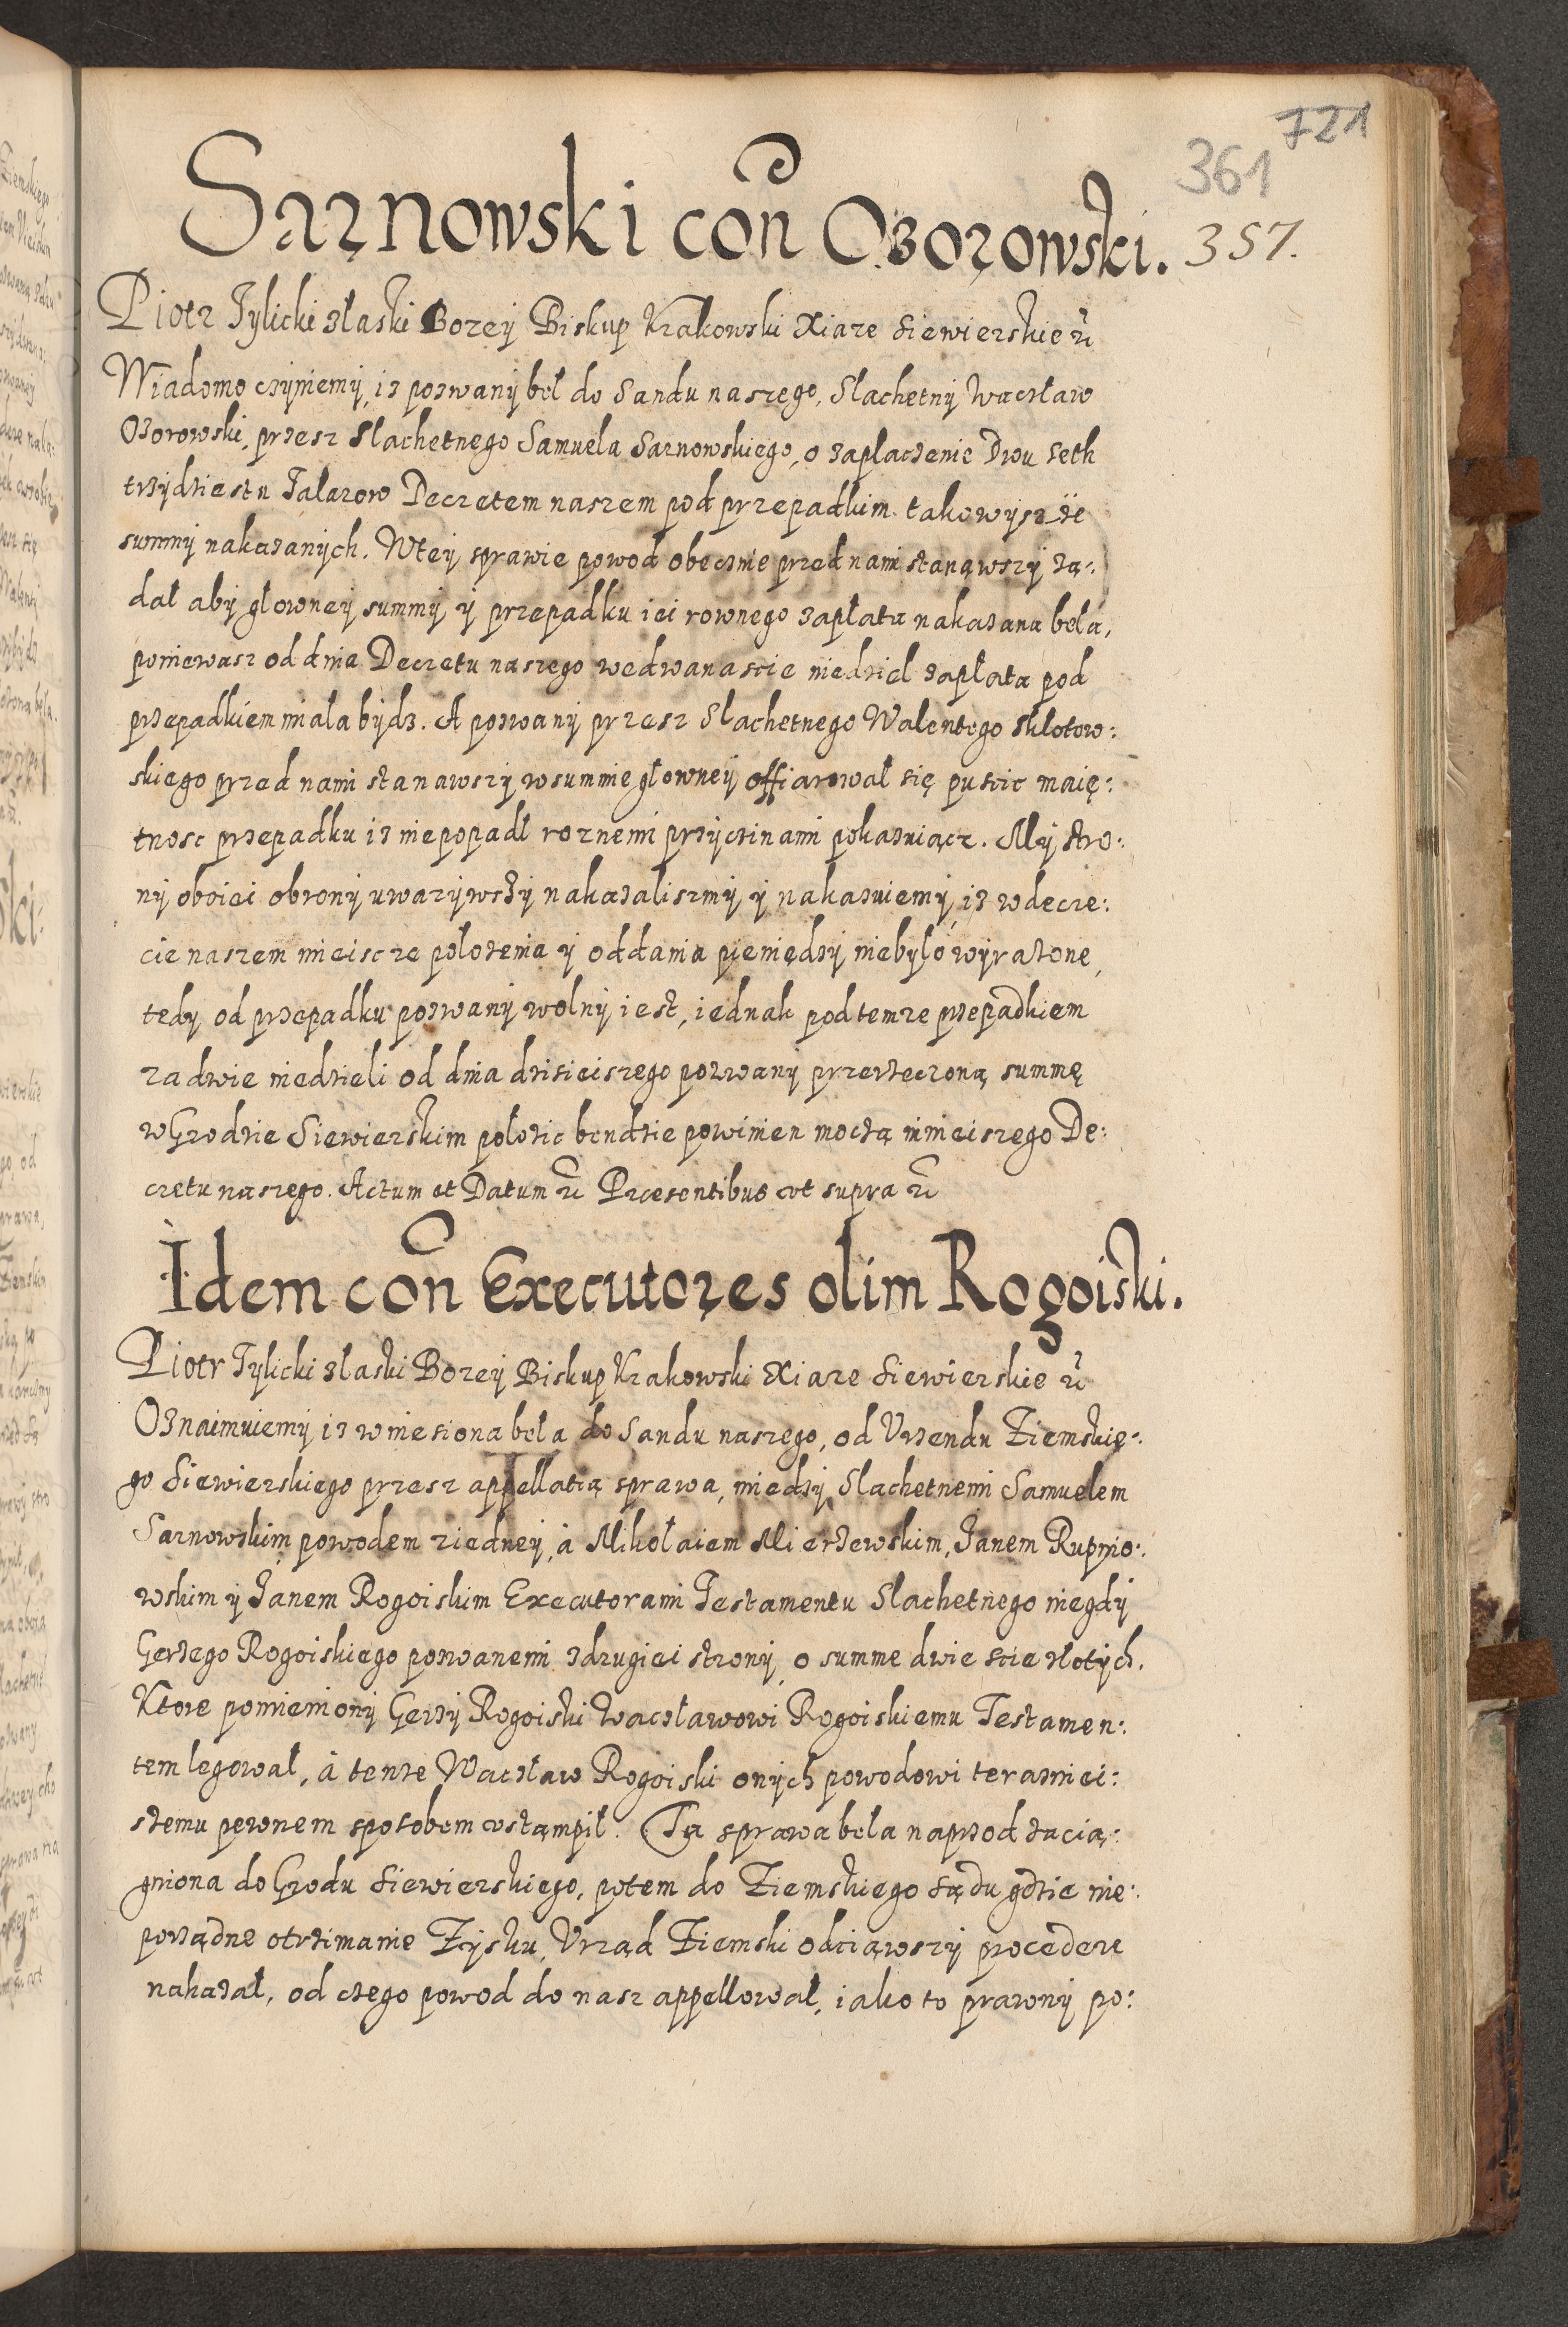 721
361
357.
Sarnowski con Ozorowski.
Piotr Tylicki z łaski Bozey Biskup Krakowski Xiaze Siewierskie &c
Wiadomo czyniemy, iz pozwany beł do Sandu naszego, Slachetny Wacław
Ozorowski, przesz Slachetnego Samuela Sarnowskiego, o zapłaczenie Dwu seth
trzydziestu Talarow Decretem naszem pod przepadkim takowysz
summy nakazanych. Wtey sprawie powod obecznie przed nami stanąwszy zą:
dał aby głowney summy y przepadku iei rownego zapłata nakazana beła,
poniewasz od dnia Decretu naszego wedwanascie niedziel zapłata pod
przepadkiem miała bydz. A pozwany przesz Slachetnego Walentego Skłotow:
skiego przed nami stanawszy w summie głowney offiarował się puscic maię:
tnosc przepadku iz niepopadł roznemi przyczinami pokazuiącz. My stro:
ny oboiei obrony uwazywszy nakazaliszmy y nakazuiemy, iz w decre:
cie naszem mieiscze połozenia y oddania pieniędzy niebyło wyrazone,
tedy od przepadku pozwany wolny iest, iednak pod temze przepadkiem
za dwie niedzieli od dnia dzisieiszego pozwany przerzeczoną summę
w Grodzie Siewierskim połozic bendzie powinien moczą ninieiszego De:
cretu naszego. Actum et Datum &c Præsentibus vt supra &c
Idem con Executores olim Rogoiski.
Piotr Tylicki z łaski Bozey Biskup Krakowski Xiaze Siewierskie &c
Oznaimuiemy iz wniesiona beła do Sandu naszego, od Vrzendu Ziemskie:
go Siewierskiego przesz appellatią sprawa, miedzy Slachetnemi Samuelem
Sarnowskim powodem ziedney, à Mikołaiem Mierzewskim, Janem Rupnio:
wskim y Janem Rogoiskim Executorami Testamentu Slachetnego niegdy
Gerzego Rogoiskiego pozwanemi z drugiei strony, o summe dwie scie złotych.
Ktore pomieniony Gerzy Rogoiski Wacławowi Rogoiskiemu Testamen:
tem legował, à tenze Wacław Rogoiski onych powodowi terazniei:
szemu pewnem sposobem vstąmpił. Ta sprawa beła naprzod zacią:
gniona do Grodu Siewierskiego, potem do Ziemskiego sądu gdzie nie:
porządne otrzimanie Zysku, Vrząd Ziemski odciąwszy procedere
nakazał, od czego powod do nasz appellował, iako to prawny po: